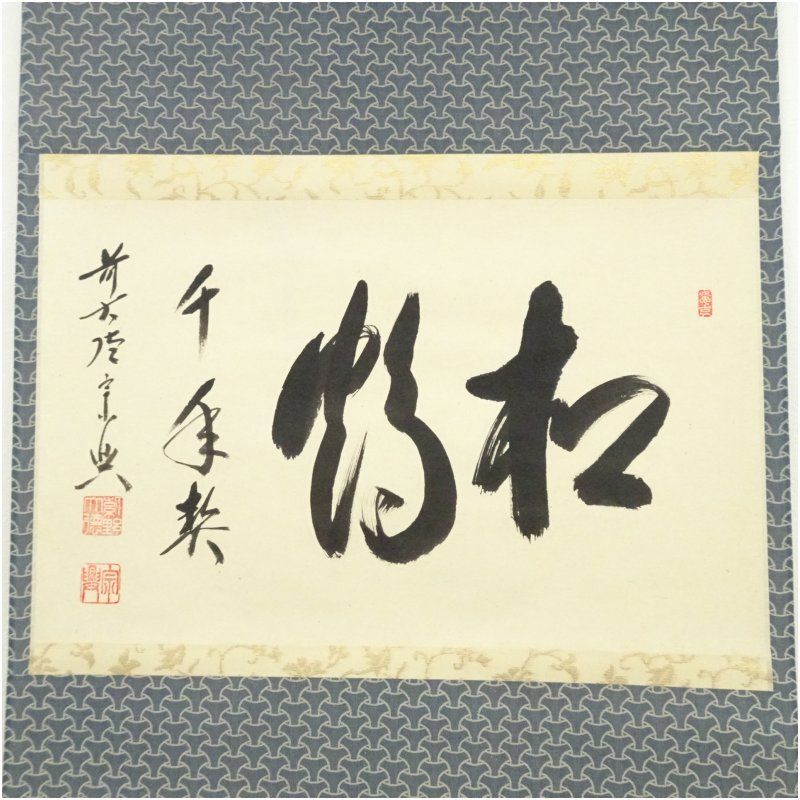 松鶴
千年契
前大徳宗